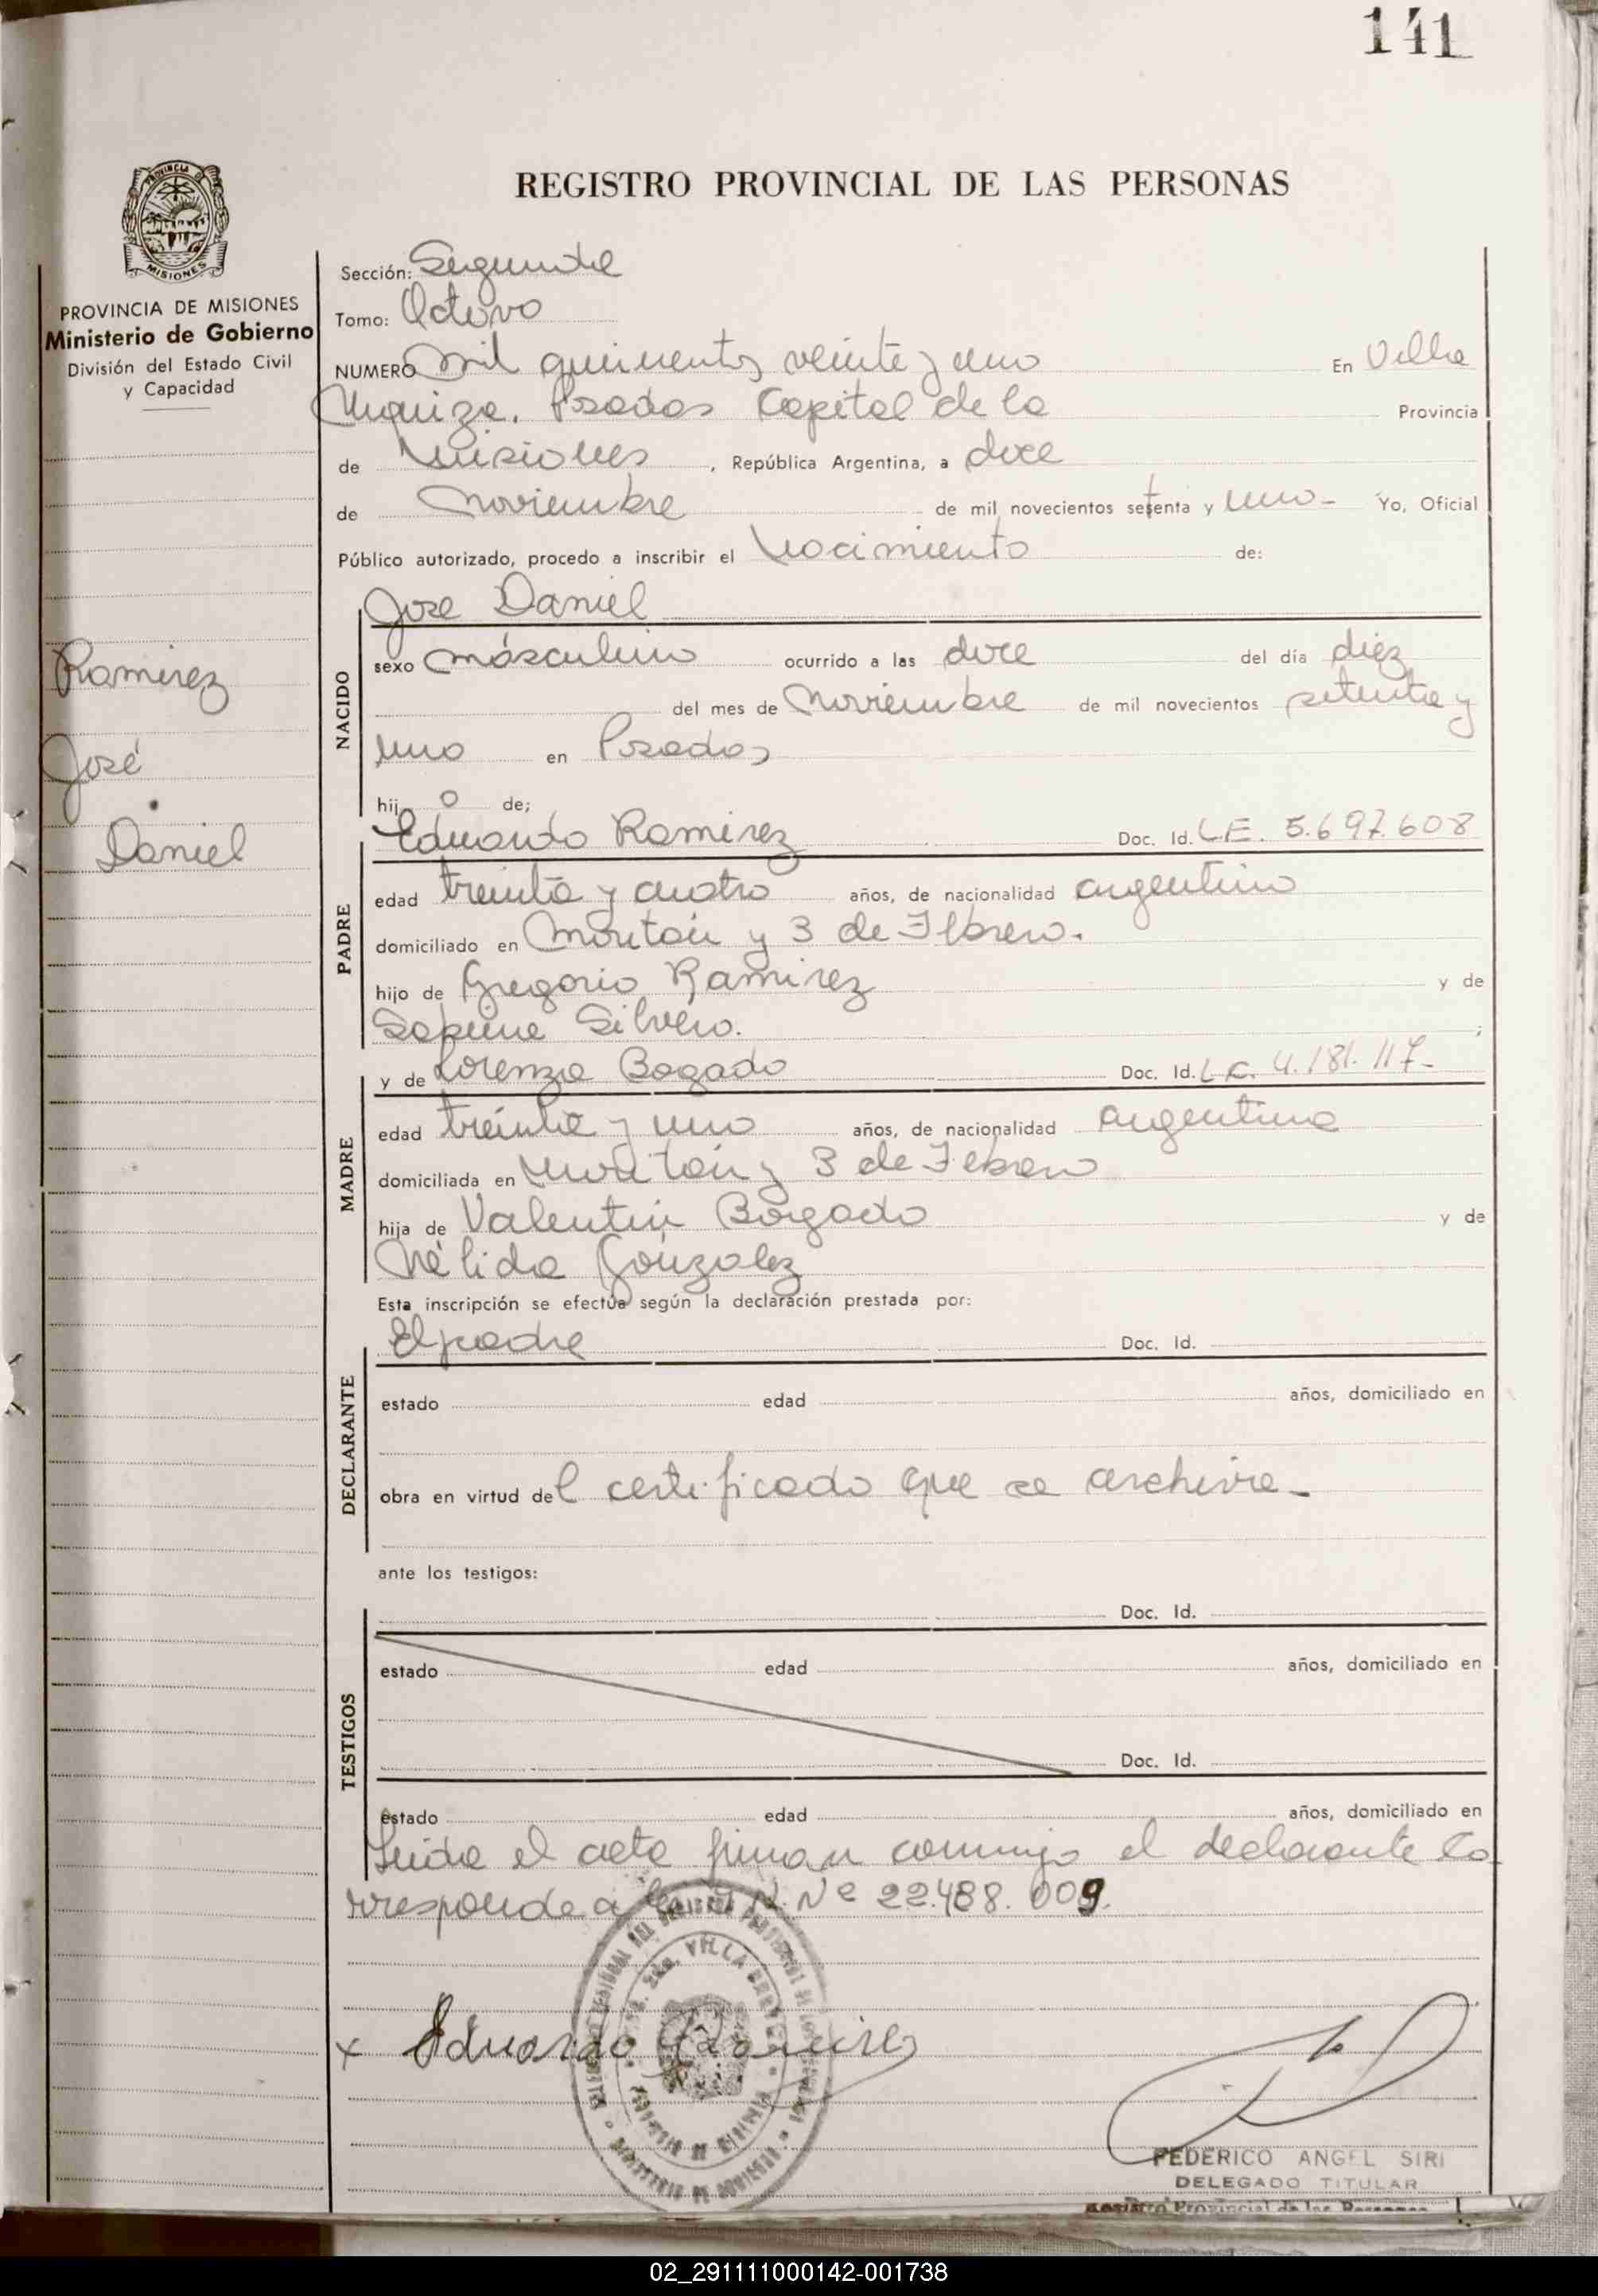 141
REGISTRO PROVINCIAL DE LAS PERSONAS
PROVINCIA DE MISIONES
MISIONES
PROVINCIA DE MISIONES
Ministerio de Gobierno
División del Estado Civil
y Capacidad
Ramirez
José
Daniel
Sección: Segunda
Tomo: Octavo
NUMERO Mil quinientos veinte y uno En Villa
Urquiza. Posadas Capital de la Provincia
de Misiones, República Argentina, a doce
de Noviembre de mil novecientos setenta y uno - Yo, Oficial
Público autorizado, procedo a inscribir el Nacimiento de:
Jose Daniel
NACIDO
sexo másculino ocurrido a las doce del día diez
del mes de Noviembre de mil novecientos setenta y
uno en Posadas
hijo de;
Eduardo Ramirez Doc. Id. L.E. 5.697.608
PADRE
edad treinta y cuatro años, de nacionalidad argentino
domiciliado en Moritán y 3 de Febrero.
hijo de Gregorio Ramirez y de
Silvero. ;
y de Lorenza Bogado Doc. Id. L.C. 4.181.117-
MADRE
edad treinta y uno años, de nacionalidad argentina
domiciliada en Moritán y 3 de Febrero
hija de Valentin Bogado y de
Nélida González
Esta inscripción se efectúa según la declaración prestada por:
El padre Doc. Id.
DECLARANTE
estado edad años, domiciliado en
obra en virtud del certificado que se archiva-
ante los testigos:
Doc. Id.
TESTIGOS
estado edad años, domiciliado en
Doc. Id.
estado edad años, domiciliado en
Leida el acta firman conmigo el declarante Co
rresponde a N. Nº 22.488.009.
VILLA
x Eduardo Ramirez
FEDERICO ANGEL SIRI
DELEGADO TITULAR
Registro Provincial de las Personas
02_291111000142-001738